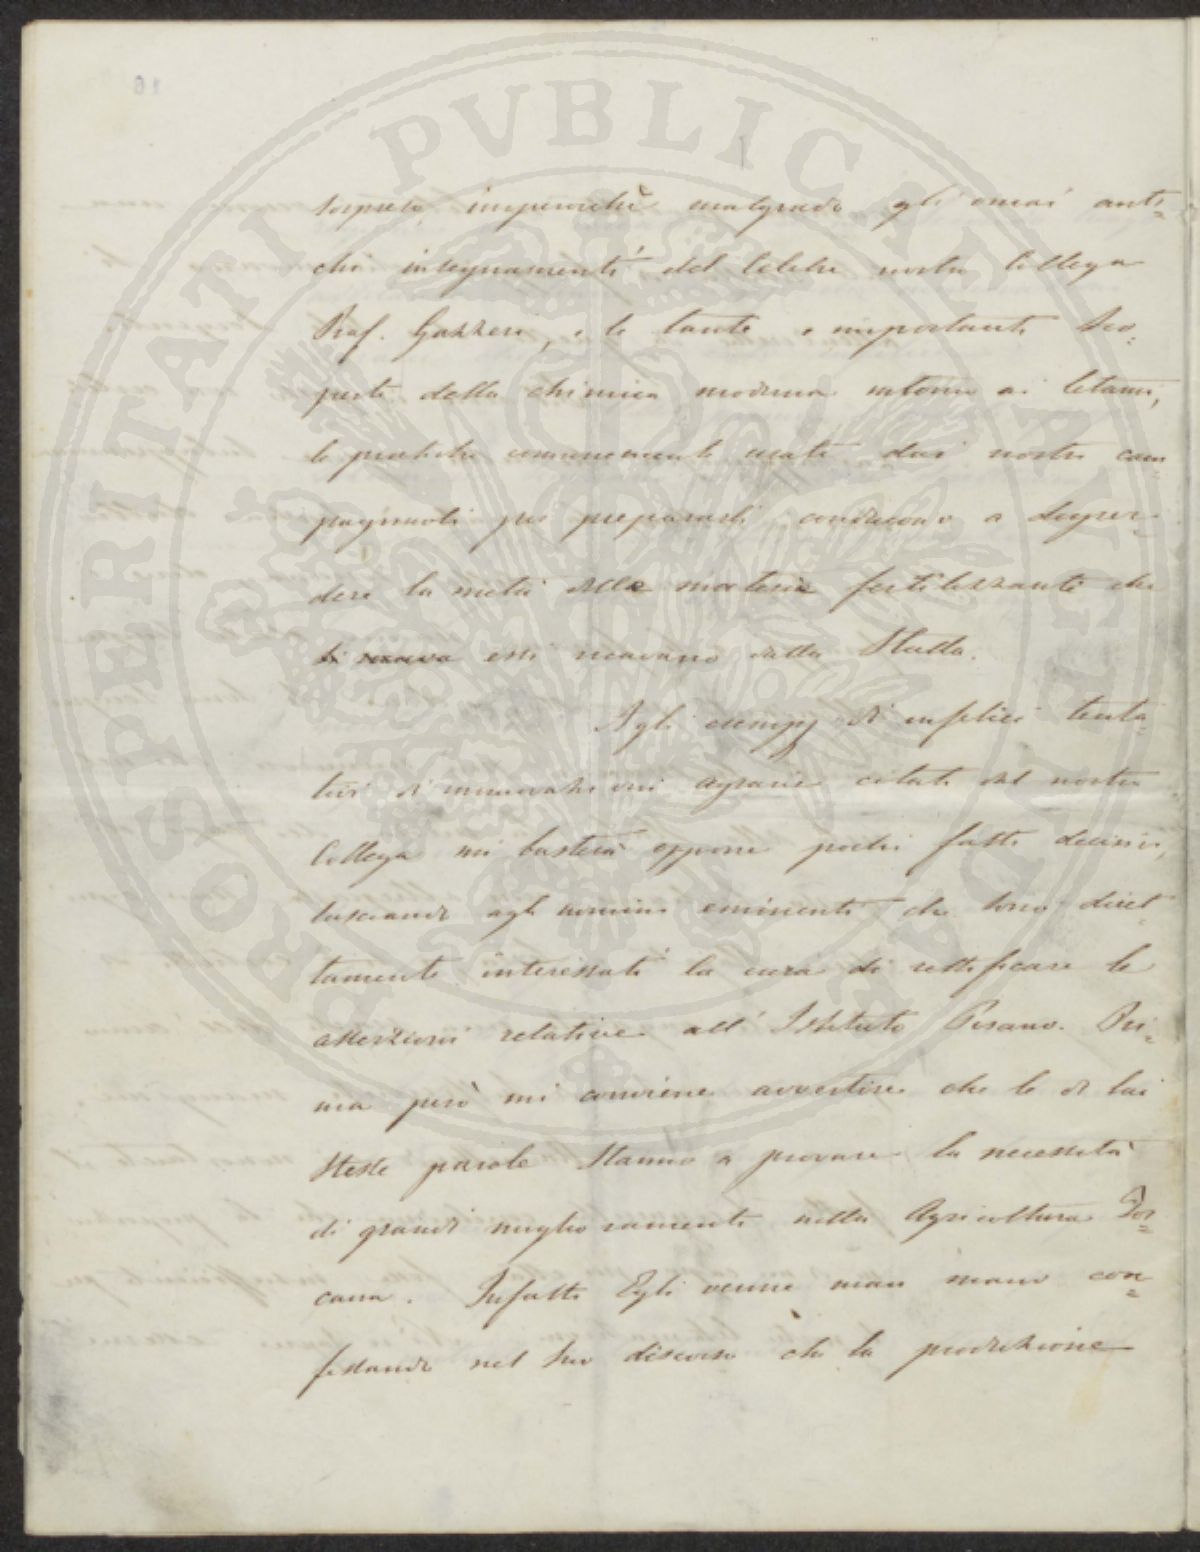 sorpreso, imperocchè malgrado gli omai anti=
chi insegnamenti del celebre nostro Collega
Prof. Gazzeri, e le tante e importanti sco=
perte della chimica moderna intorno ai letami,
le pratiche comunemente usate dai nostri cam=
pagnuoli per prepararli conducono a disper=
dere la metà delle materie fertilizzanti che
essi ricavano dalla Stalla.
Agli esempj di infelici tenta
tivi di innovazioni agrarie citati dal nostro
Collega mi basterà opporre pochi fatti decisivi,
lasciando agli uomini eminenti che sono diret=
tamente interessati la cura di rettificare le
asserzioni relative all' Istituto Pisano. Pri=
ma però mi conviene avvertire che le di lui
stesse parole stanno a provare la necessità
di grandi miglioramenti nella Agricoltura Tos=
cana. Infatti Egli venne man mano con=
fessando nel suo discorso che la produzione
PROSPERITATI PVBLICAE AVGENDAE
16